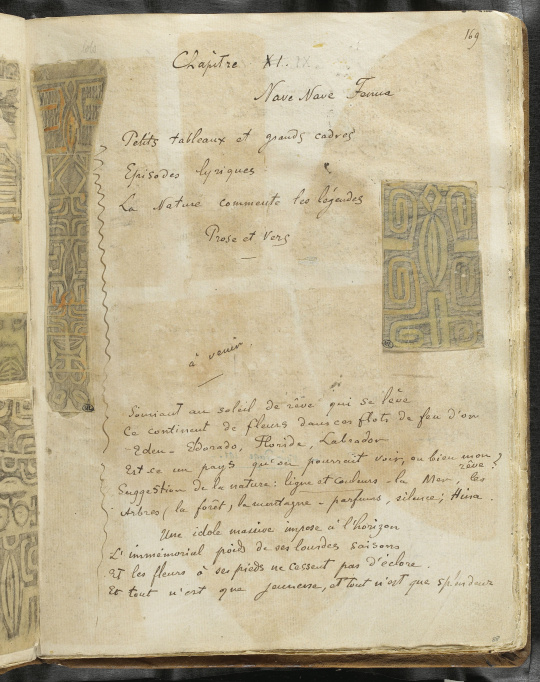 169
Chapitre XI.
Nave Nave Fenua
Petits tableaux et grands cadres
Episodes lyriques
La Nature commente les légendes
Prose et Vers
à venir.
Souriant au soleil de rêve qui se lève
Ce continent de fleurs dans ces flots de feu d'or
- Eden - Eldorado, Floride, Labrador
Est-ce un pays qu'on pourrait voir, ou bien mon rêve?
Suggestion de la nature: ligne et couleurs - la Mer, les
Arbres, la forêt, la montagne - parfums, silence; Hina.
Une idole massive impose à l'horizon
L'immémorial poids de ses lourdes saisons
Et les fleurs à ses pieds ne cessent pas d'éclore.
Et tout n'est que jeunesse, et tout n'est que splendeur